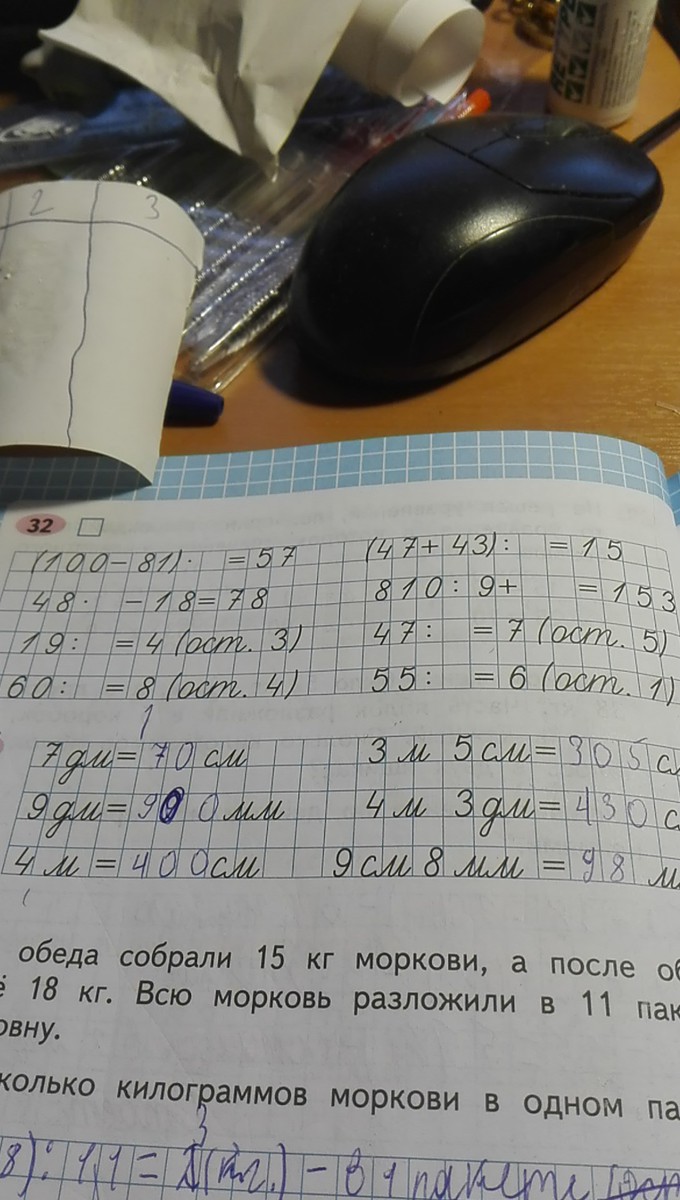 2 3
32
(100-81)· =57 (47+43): =15
48· -18=78 810:9+ =153
19: =4 (ост. 3) 47: =7 (ост. 5)
60: =8 (ост. 4) 55: =6 (ост. 1)
7 дм= 70 см 3 м 5 см= 305 с
9 дм= 900 мм 4 м 3 дм= 430 с
4 м = 400 см 9 см 8 мм = 98 м
обеда собрали 15 кг моркови, а после об
ё 18 кг. Всю морковь разложили в 11 пак
овну.
колько килограммов моркови в одном па
8): 11 = 3 (кг.) - в 1 пакете